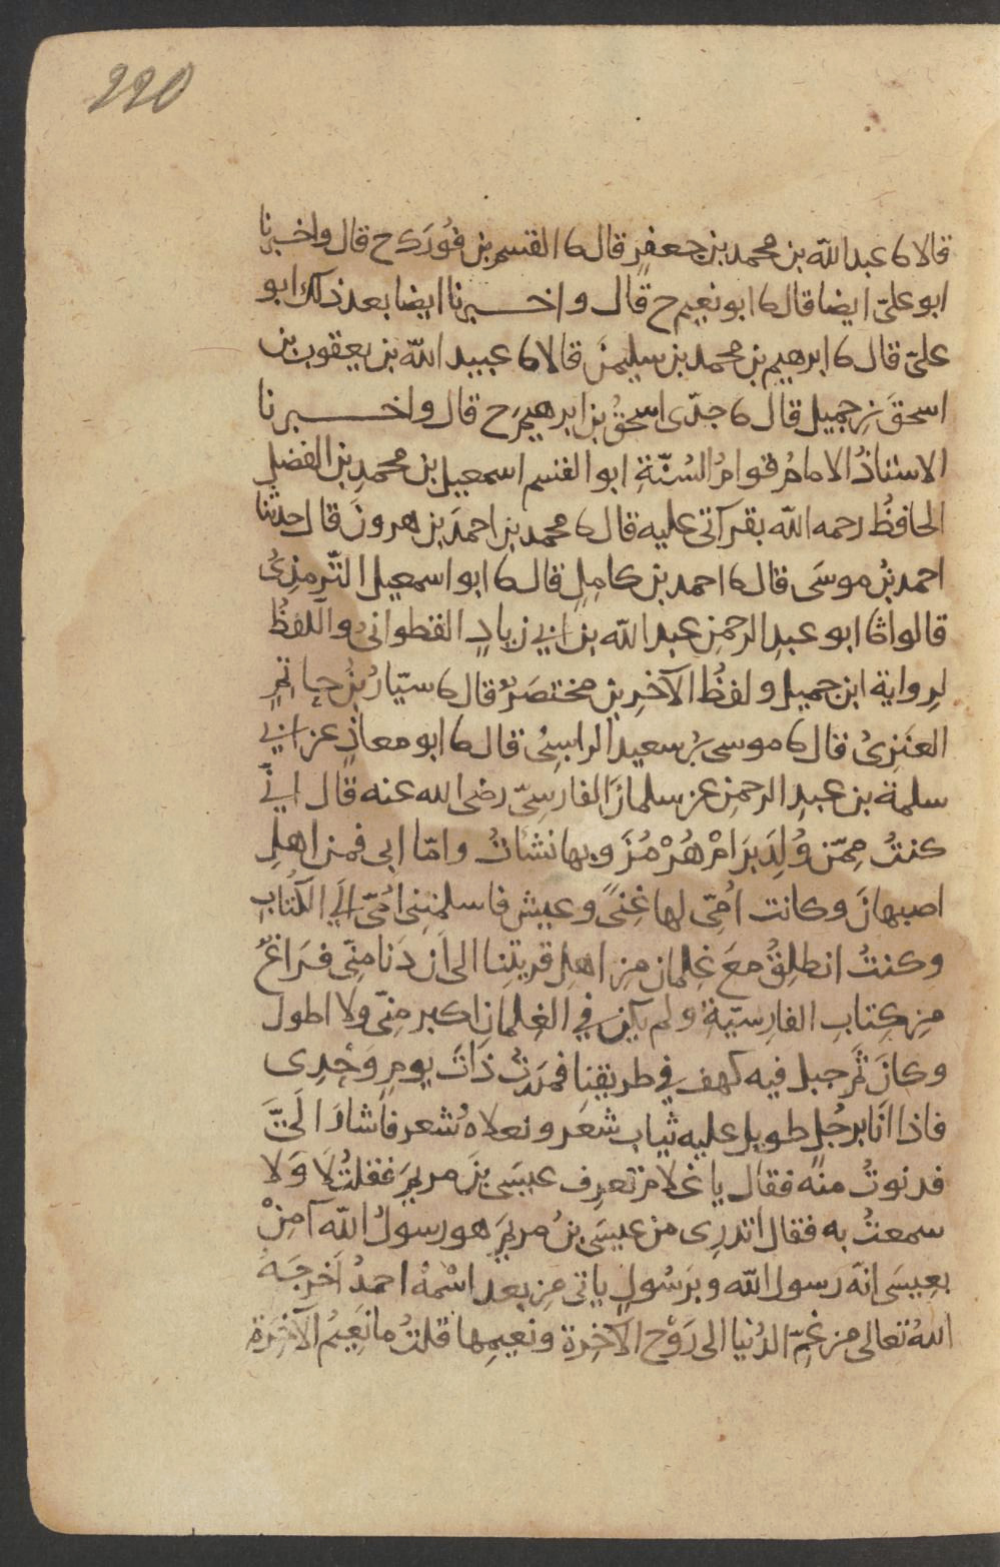 220
قالا نا عبد الله بن محمد بن جعفر قال نا القسم بن فورك ح قال واخبرنا
ابو علىّ ايضا قال نا ابو نعيم ح قال واخبرنا ايضا بعد ذلك ابو
علىّ قال نا ابرهيم بن محمد بن سليمن قالا نا عبيد الله بن يعقوب بن
اسحقَ بنِ جميل قال نا جدّى اسحقُ بن ابرهيمَ ح قال واخبرنا
الاستاذُ الامامُ قوامُ السُنّةِ ابو القسم اسمعيل بن محمدِ بن الفضلِ
الحافظُ رحمه الله بقرآتى عليه قال نا محمد بن احمدَ بن هرونَ قال حدثنا
احمد بنُ موسَى قال نا احمد بن كامِلٍ قال نا ابو اسمعيل التّرمِذِىُّ
قالوا ثنا ابو عبدِ الرحمنِ عبد الله بن ابي زيادٍ القطوانى واللفظُ
لرِواية ابن جميل ولفظُ الآخرِين مختصَرٌ قال نا سيّارُ بنُ حاتِمٍ
العنَزِىُّ قال نا موسى بنُ سعيد الراسِبُى قال نا ابو معاذٍ عن ابي
سلمة بن عبدِ الرحمنِ عن سلمانَ الفارسِىّ رضى الله عنه قال انّي
كنتُ مِمّن وُلِدَ بِرَامْ هُرْمُزَ وبها نشَاتُ وامّا ابى فمن اهلِ
اصبهانَ وكانت اُمّى لها غِنًى وعيش فاسلمتنى اُمّى الَي الكُتابِ
وكنتُ انطلِقُ معَ غِلمان مِن اهلِ قريتِنا الى اَن دَنا منِّى فَراغٌ
مِن كِتابِ الفارِسيّةِ ولم يكن في الغِلمانِ اكبر مِنّى ولا اطول
وكانَ ثَمّ جبل فيه كهف في طريقنا فمَررتُ ذاتَ يومٍ وَحْدِى
فاذا انَا برجُلٍ طويل عليه ثياب شعَر ونعلاهُ شعر فاشارَ الَىَّ
فدنوتُ منه فقال يا غلام تعرِف عيسَى بنَ مريمَ فقلتُ لَا وَلا
سمعتُ به فقال اتدرِى من عيسَى بنُ مريمَ هو رسولُ الله آمِنْ
بعِيسَى انّه رسول الله وبرَسُولٍ ياتى مِن بعد اسْمُهُ احمدُ اَخرجَهُ
اللهُ تعالى من غمِّ الدُنيا الى رَوْح الآخِرة ونعيمِها قلتُ ما نَعِيمُ الآخِرَة